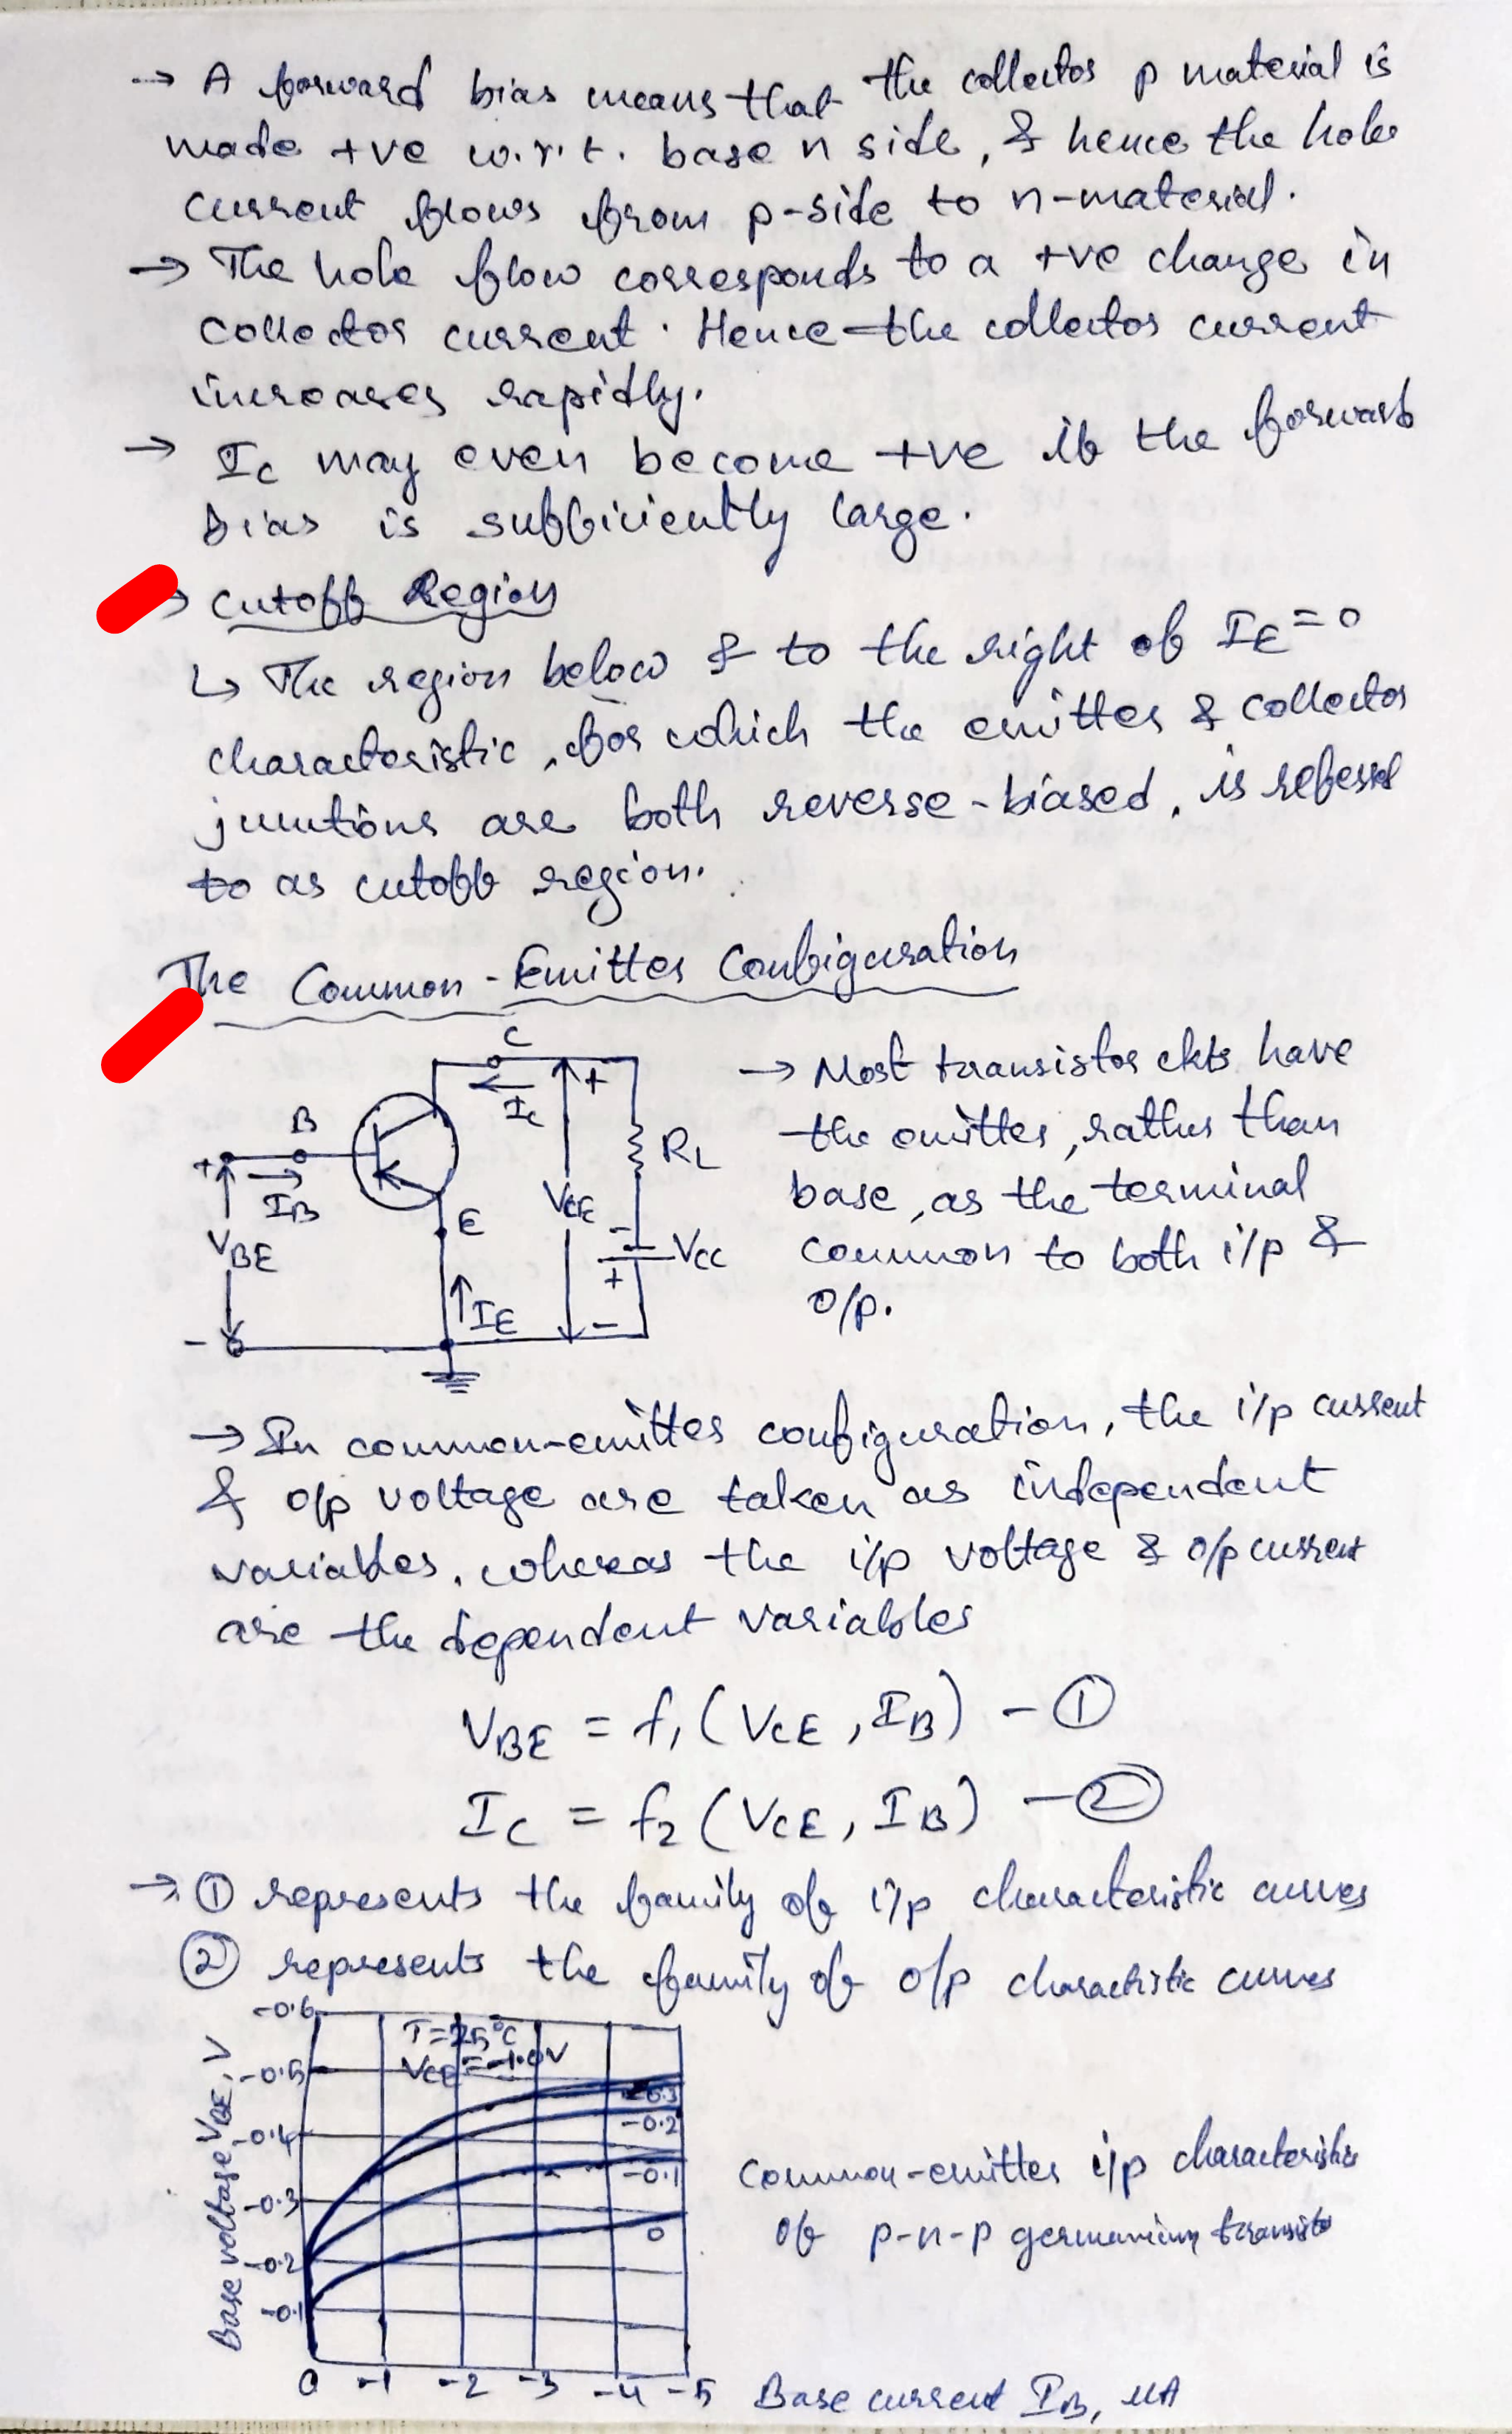 → A forward bias means that the collector p material is
made +ve w.r.t. base n side, & hence the hole
current flows from p-side to n-material.
→ The hole flow corresponds to a +ve change in
collector current. Hence the collector current
increases rapidly.
→ IC may even become +ve if the forward
bias is sufficiently large.
→ Cutoff Region
↳ The region below & to the right of IE = 0
characteristic, for which the emitter & collector
junctions are both reverse-biased, is referred
to as cutoff region.
The Common-Emitter Configuration
C
+
IC
B
RL
+
IB
VCE
E
-
VBE
VCC
+
IE
-
-
→ Most transistor ckts have
the emitter, rather than
base, as the terminal
common to both i/p &
o/p.
→ In common-emitter configuration, the i/p current
& o/p voltage are taken as independent
variables, whereas the i/p voltage & o/p current
are the dependent variables
VBE = f1 (VCE, IB) - ①
IC = f2 (VCE, IB) - ②
→ ① represents the family of i/p characteristic curves
② represents the family of o/p charactistic curves
-0.6
T=25°C
VCE=-1.0V
-0.5
-0.3
-0.2
-0.4
-0.1
-0.3
0
-0.2
-0.1
Base voltage VBE, V
0 -1 -2 -3 -4 -5
Base current IB, MA
Common-emitter i/p characteristics
of p-n-p germanium transistor